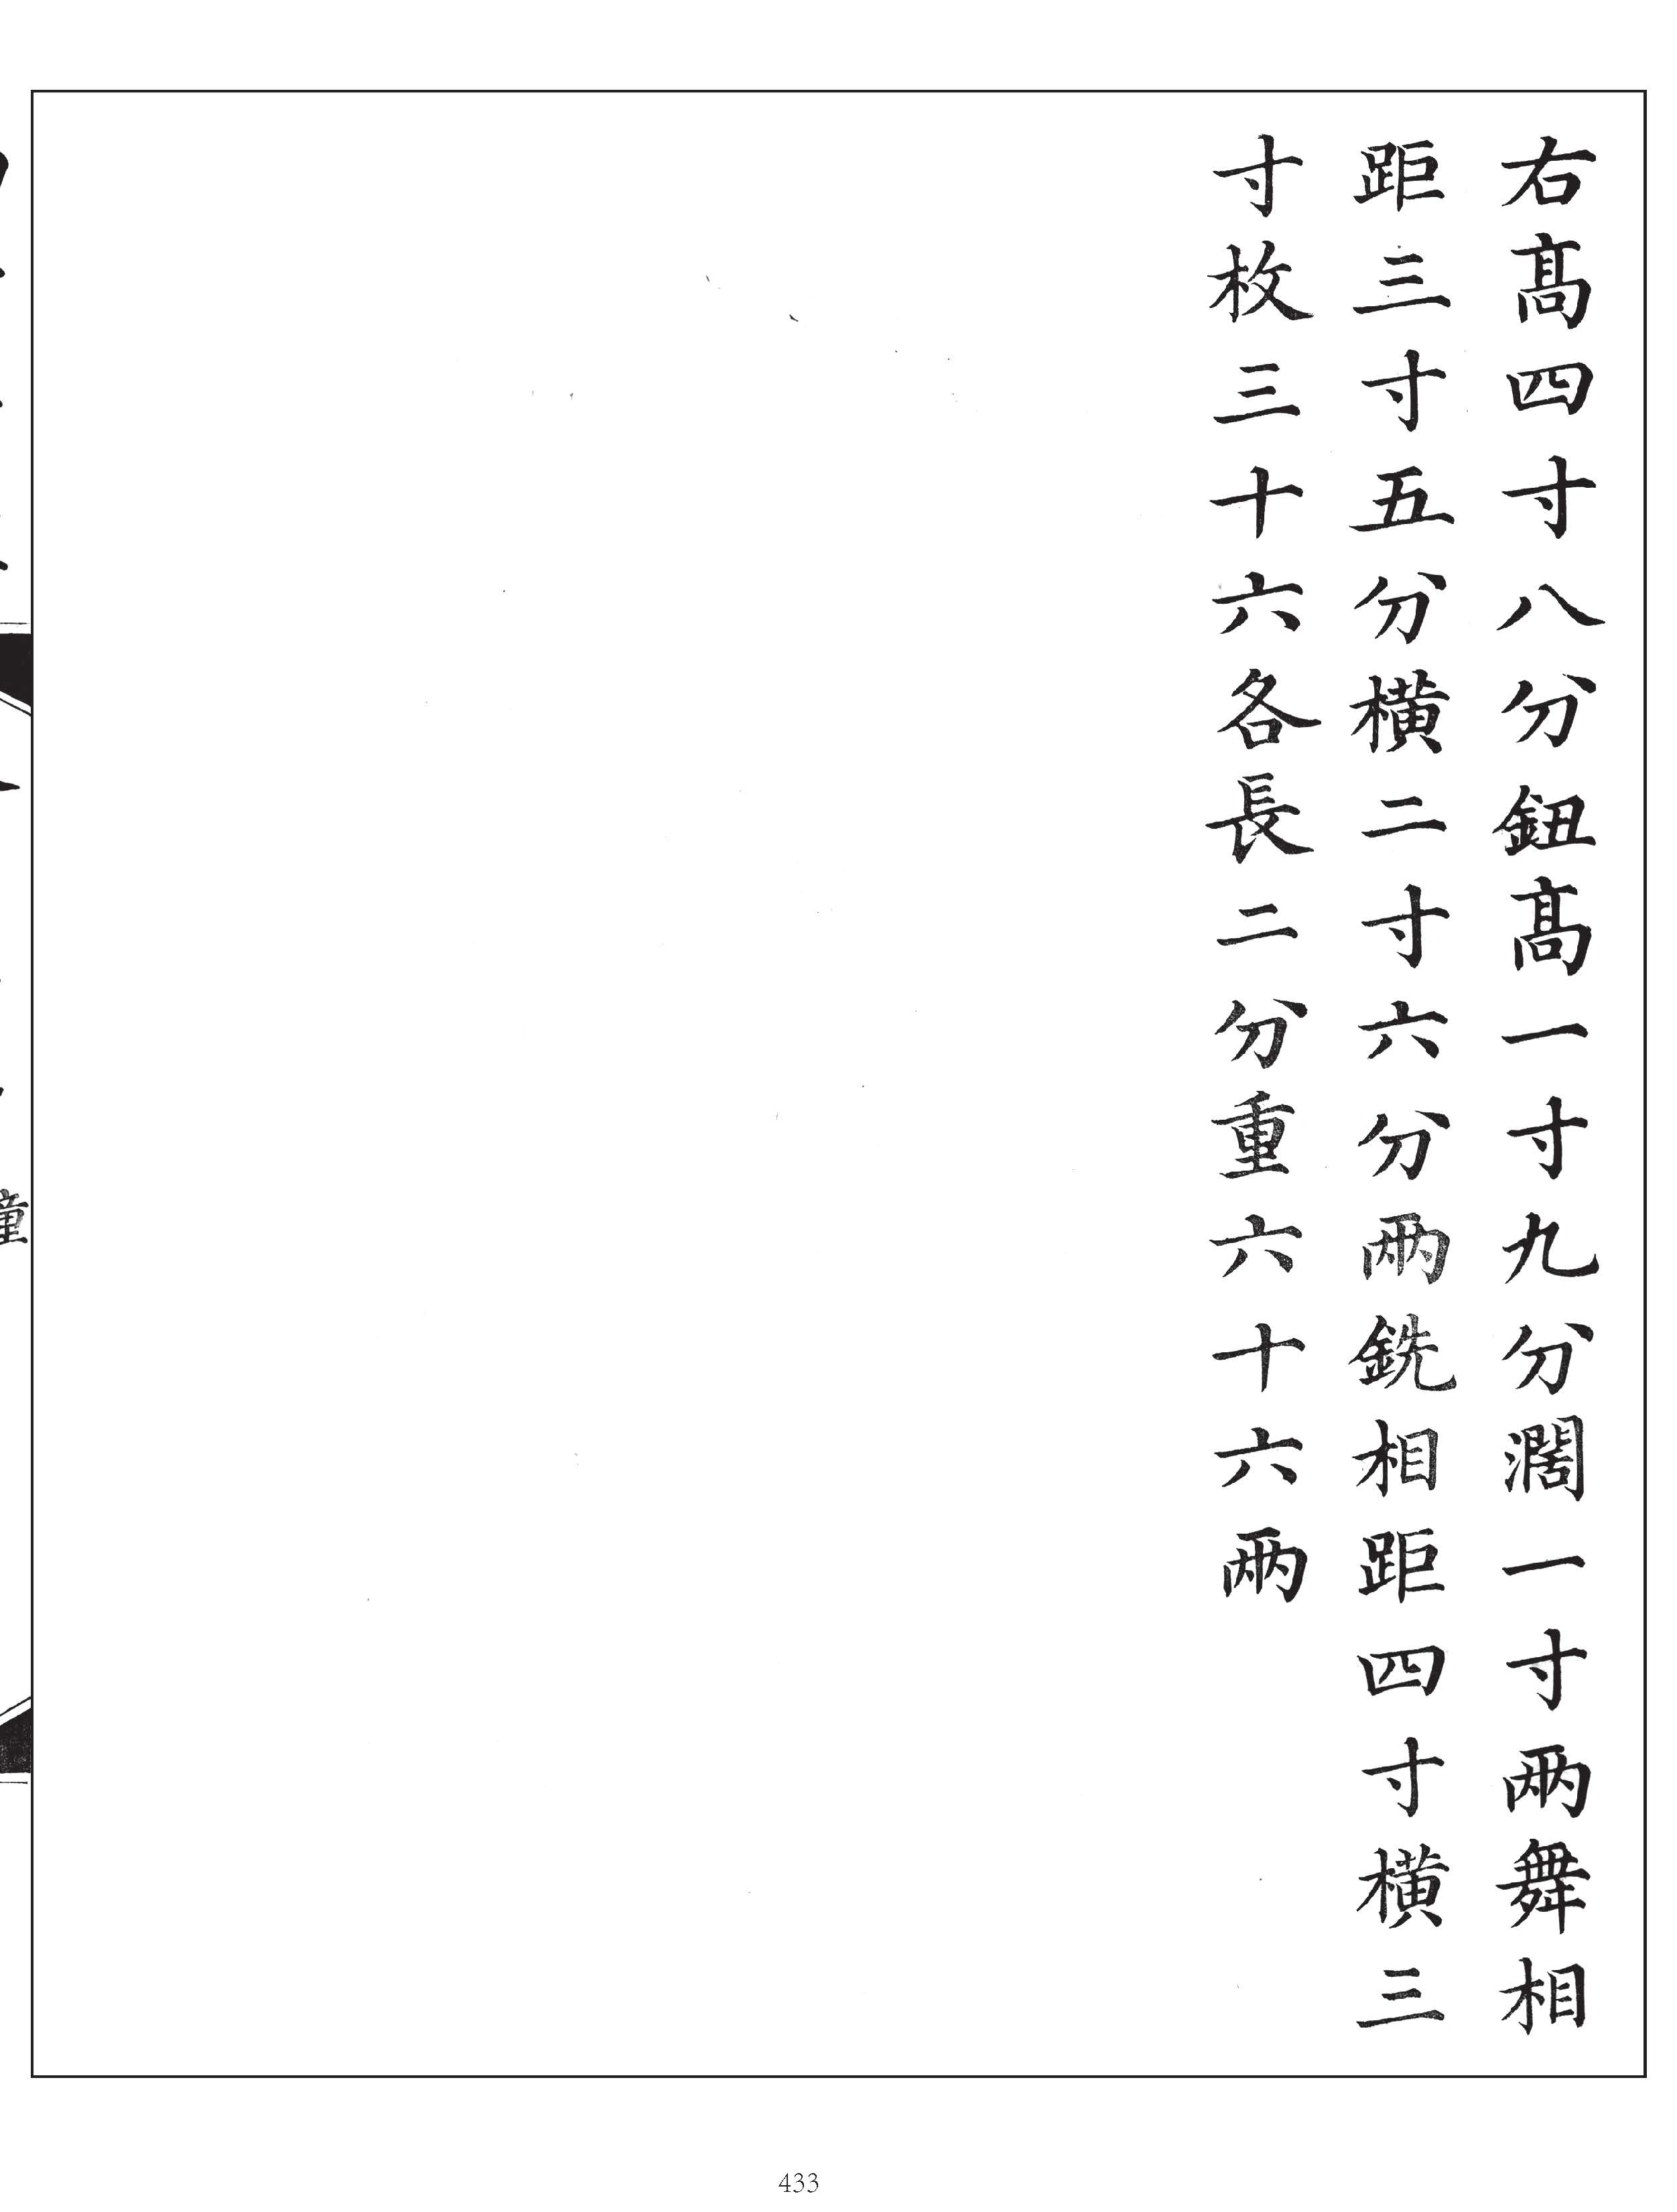 右髙四寸八分鈕髙一寸九分濶一寸兩舞相
距三寸五分横二寸六分兩銑相距四寸横三
寸枚三十六各長二分重六十六兩
433